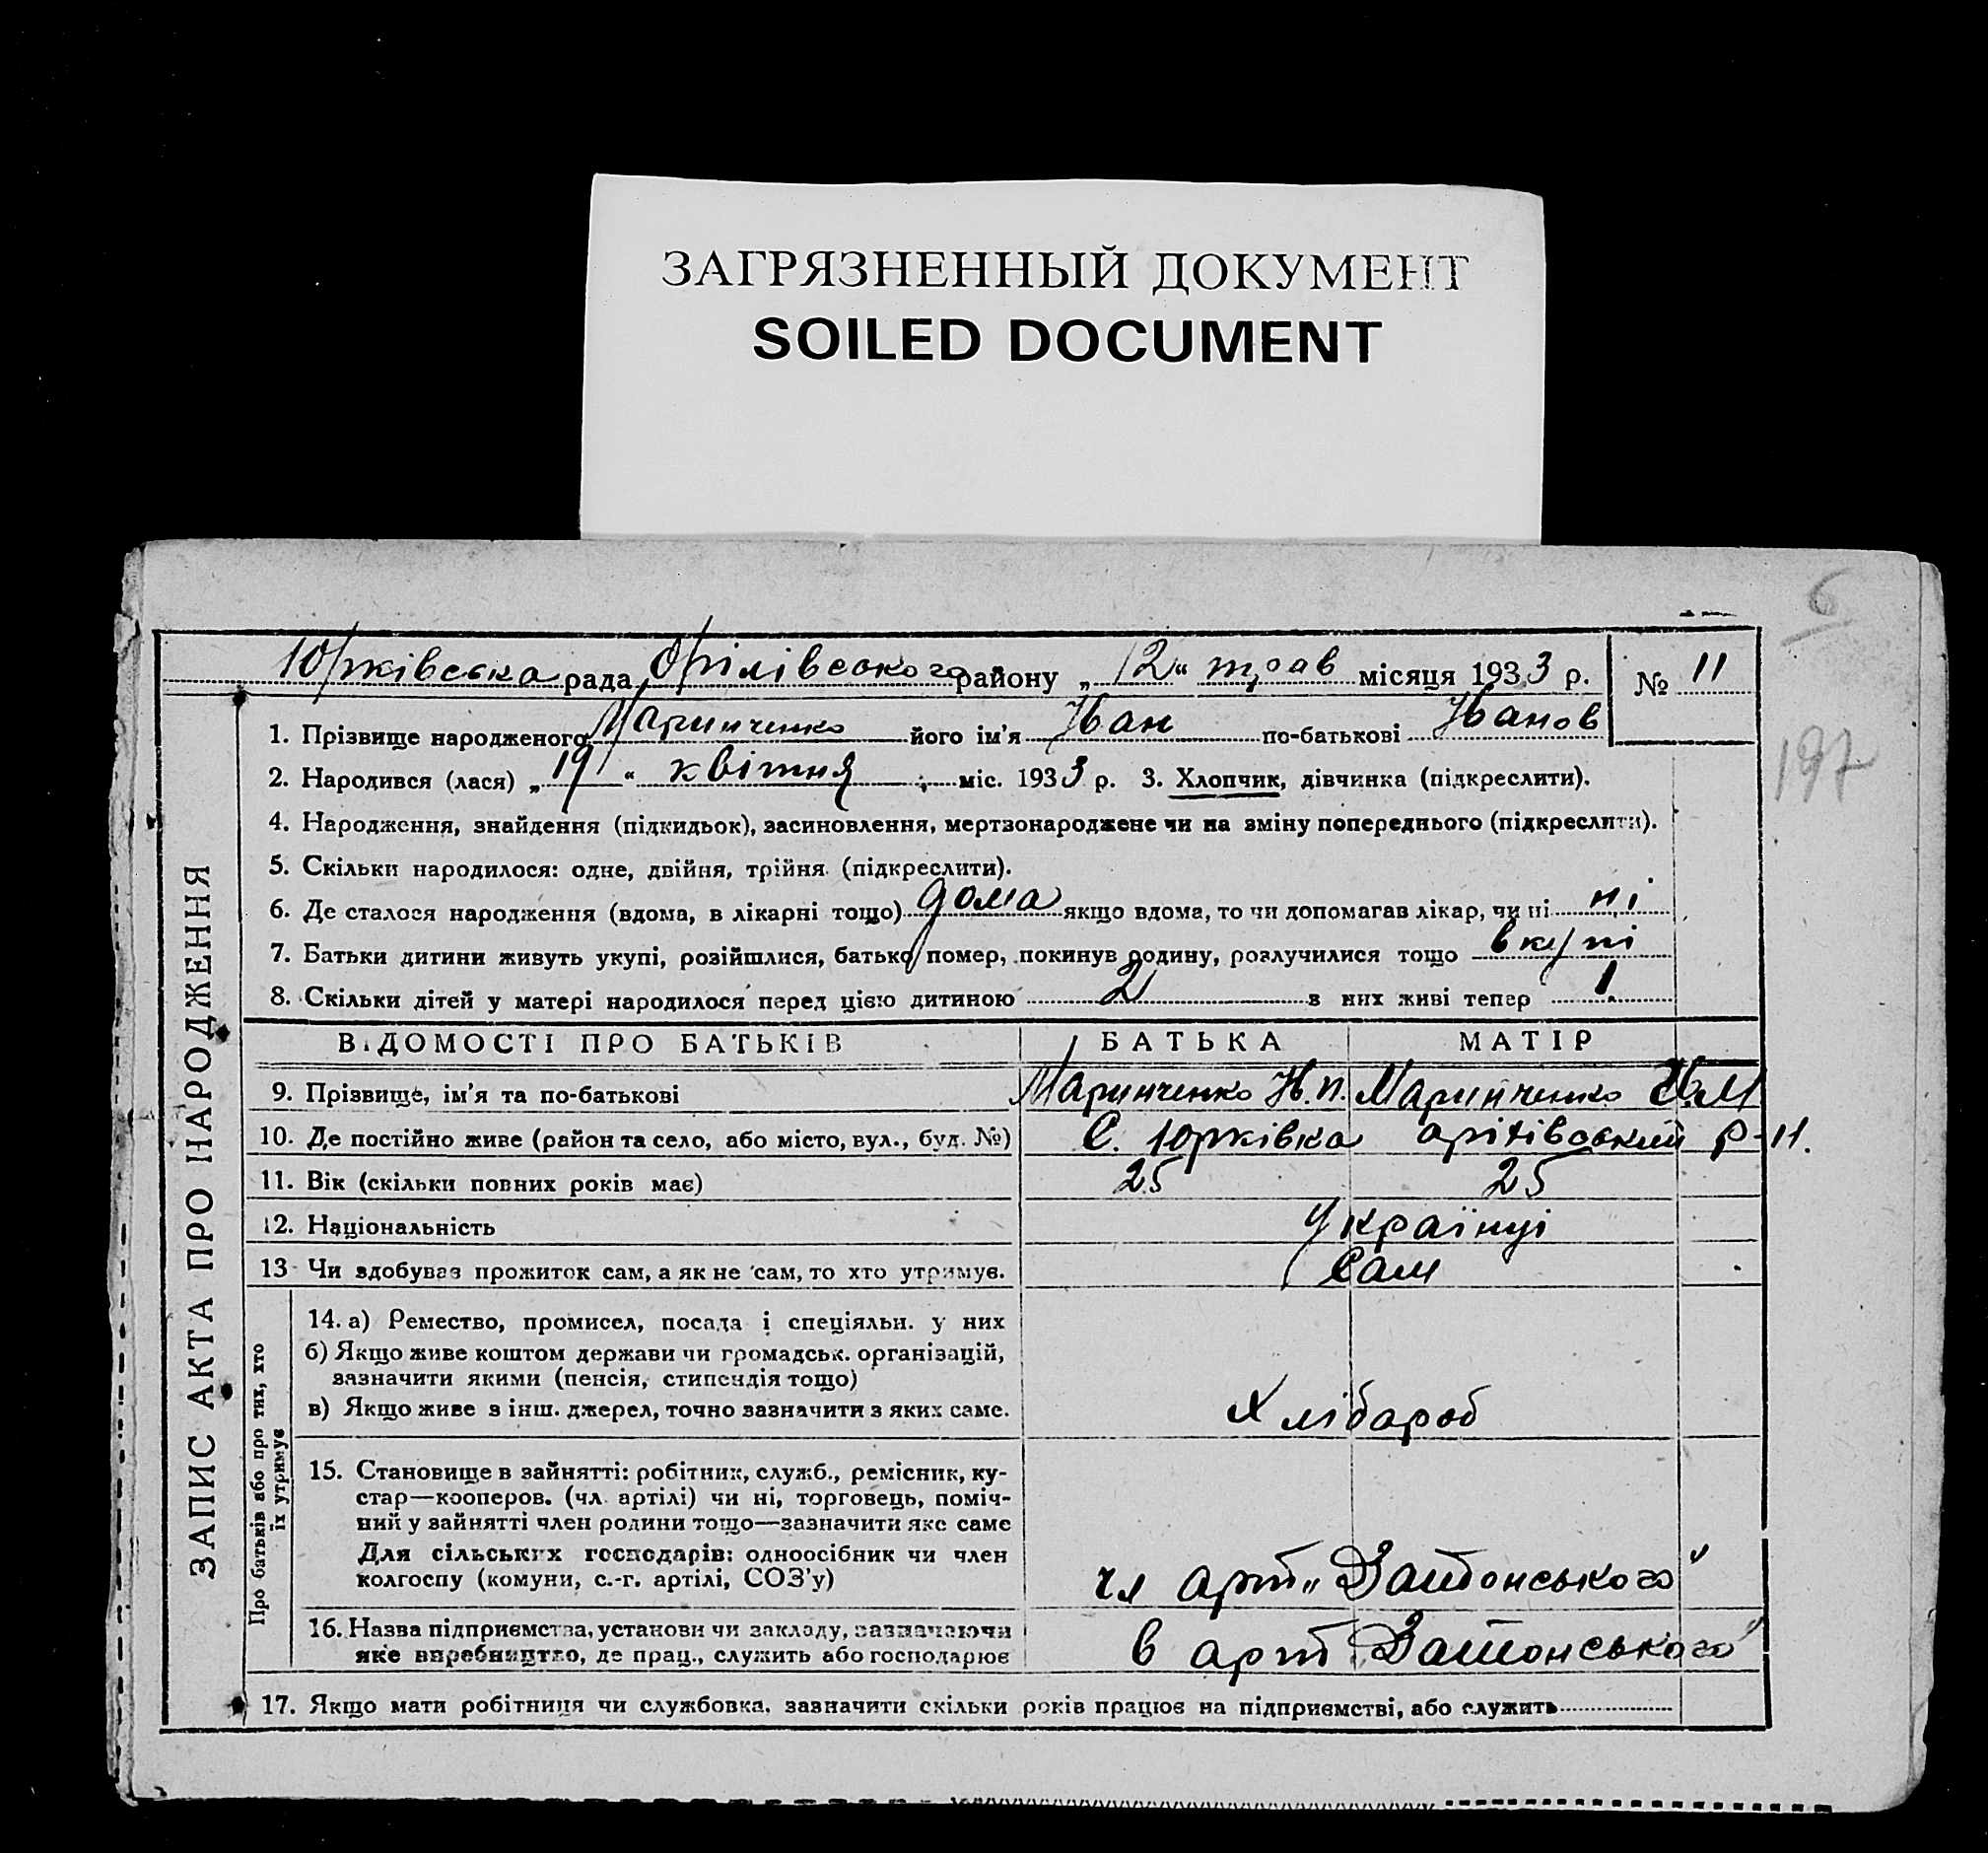 ЗАГРЯЗНЕННЫЙ ДОКУМЕНТ
SOILED DOCUMENT
6
Юрківська рада Орілівського району „12“ трав місяця 1933 р. № 11
197
ЗАПИС АКТА ПРО НАРОДЖЕННЯ
1. Прізвище народженого Маринченко його ім'я Иван по-батькові Иванов
2. Народився (лася) „19“ квітня міс. 1933 р. 3. Хлопчик, дівчинка (підкреслити).
4. Народження, знайдення (підкидьок), засиновлення, мертвонароджене чи на зміну попереднього (підкреслити).
5. Скільки народилося: одне, двійня, трійня (підкреслити).
6. Де сталося народження (вдома, в лікарні тощо) дома якщо вдома, то чи допомагав лікар, чи ні ні
7. Батьки дитини живуть укупі, розійшлися, батько помер, покинув родину, розлучилися тощо вкупі
8. Скільки дітей у матері народилося перед цією дитиною 2 з них живі тепер 1
ВІДОМОСТІ ПРО БАТЬКІВ БАТЬКА МАТІР
9. Прізвище, ім'я та по-батькові Маринченко И.П. Маринченко М
10. Де постійно живе (район та село, або місто, вул., буд. №) С. Юрківка орілівський р-н.
11. Вік (скільки повних років має) 25 25
12. Національність Українці
13 Чи здобуває прожиток сам, а як не сам, то хто утримує. Сам
Про батьків або про тих, хто
їх утримує
14. а) Ремество, промисел, посада і спеціяльн. у них
б) Якщо живе коштом держави чи громадськ. організацій,
зазначити якими (пенсія, стипендія тощо)
в) Якщо живе з інш. джерел, точно зазначити з яких саме. Хлібароб
15. Становище в зайнятті: робітник, служб., ремісник, ку-
стар—кооперов. (чл. артілі) чи ні, торговець, поміч-
ний у зайнятті член родини тощо—зазначити яке саме
Для сільських господарів: одноосібник чи член
колгоспу (комуни, с.-г. артілі, СОЗ'у) чл арт „Затонського“
16. Назва підприємства, установи чи закладу, зазначаючи
яке виробництво, де прац., служить або господарює в арт Затонського“
17. Якщо мати робітниця чи службовка, зазначити скільки років працює на підприємстві, або служить